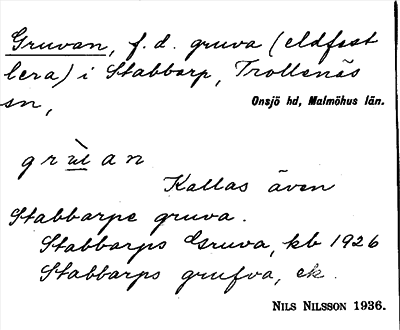 Gruvan, f. d. gruva (eldfast
lera) i Stabbarp, Trollenäs
sn,
Onsjö hd, Malmöhus län.
Kallas även
Stabbarps gruva.
Stabbarps Gruva, kb 1926
Stabbarps grufva, ek.
NILS NILSSON 1936.